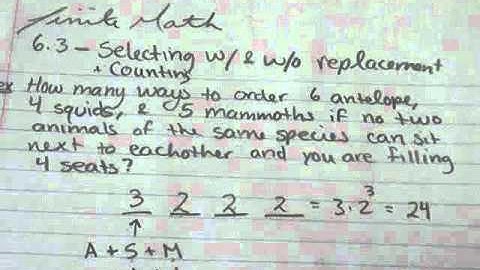 Finite Math
6.3 - Selecting w/ & w/o replacement
+ Counting
ex How many ways to order 6 antelope,
4 squids, & 5 mammoths if no two
animals of the same species can sit
next to eachother and you are filling
4 seats?
3 2 2 2 = 3·2³ = 24
↑
A + S + M